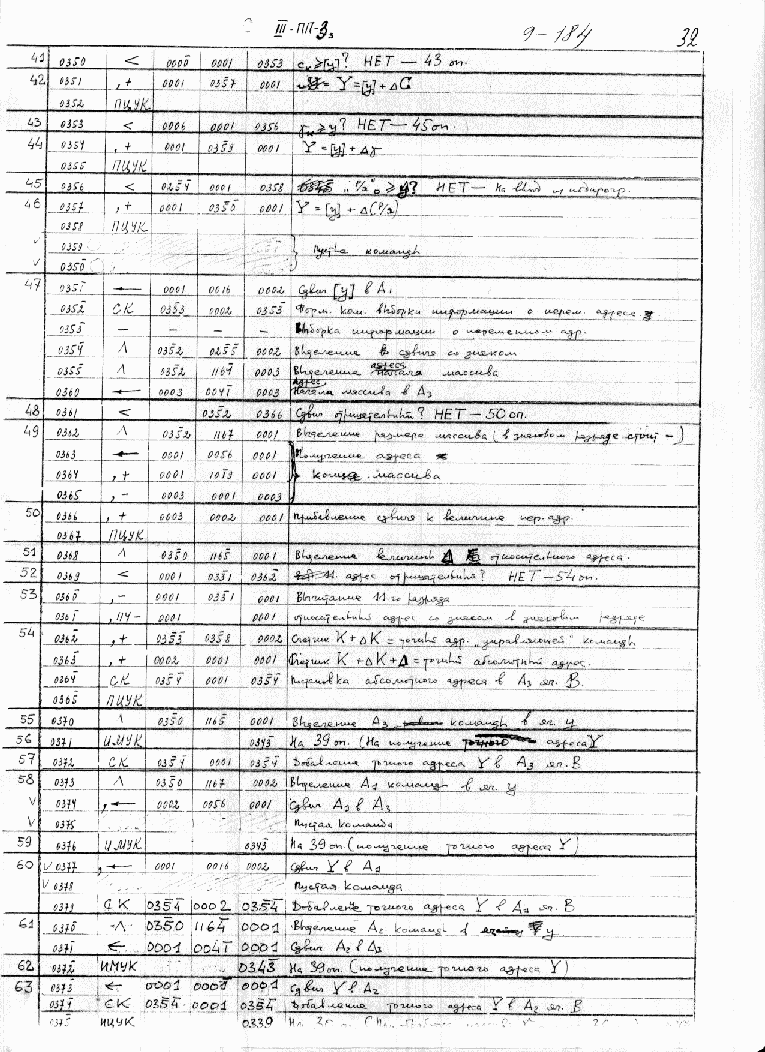 III-ПП-3 9-184 32
41 0350 < 0000 0001 0353 [y]? НЕТ — 43 оп.
42 0351 ,+ 0001 0357 0001 Y = [y] + ΔC
0352 ПЦУК
43 0353 < 0006 0001 0356 ≥ y? НЕТ — 45 оп.
44 0354 ,+ 0001 0359 0001 Y = [y] +
0355 ПЦУК
45 0356 < 0001 0358 НЕТ — На
46 0357 ,+ 0001 0001 Y = [y] +
0358 ПЦУК
V 0359 Пустые команды
V 0350̄
47 0351̄ ← 0001 0016 0002 Сдвиг [y] в A₁
0352̄ СК 0353̄ 0002 0353̄ Форм. ком. выборки информации о перем. адресе y
0353̄ — — — — Выборка информации о переменном адр.
0354̄ Λ 0352̄ 0002 Выделение сдвига со знаком
0355̄ Λ 0352̄ 1164̄ 0003 Выделение адреса начала массива
0360 ← 0003 0041̄ 0003 Адрес начала массива в A₃
48 0361 < 0352̄ 0366 Сдвиг отрицательный? НЕТ — 50 оп.
49 0362 Λ 0352̄ 1167 0001 Выделение размера массива (в знаковом разряде стоит —)
0363 ← 0001 0056 0001 Получение адреса
0364 ,+ 0001 0001 конца массива
0365 ,- 0003 0001 0003
50 0366 ,+ 0003 0002 0001 Прибавление сдвига к величине пер. адр.
0367 ПЦУК
51 0368 Λ 0350̄ 1165̄ 0001 Выделение величины Δ относительного адреса.
52 0369 < 0001 0331 0362̄ 11. адрес отрицательный? НЕТ — 54 оп.
53 0360̄ ,- 0001 0331 0001 Вычитание 11-го разряда
0361̄ ,ПУ- 0001 0001 относительный адрес со знаком в знаковом разряде
54 0362̄ ,+ 0353̄ 0358 0002 Счетчик K + ΔK = точный адр. "управляющей" команды
0363̄ ,+ 0002 0001 0001 Счетчик K + ΔK + Δ = точный абсолютный адрес.
0364̄ СК 0354̄ 0001 0354̄ Подстановка абсолютного адреса в A₃ яч. B
0365̄ ПЦУК
55 0370 Λ 0350̄ 1165̄ 0001 Выделение A₃ команды в яч. y
56 0371 ИМУК 0343̄ На 39 оп. (На получение точного адреса Y
57 0372 СК 0354̄ 0001 0354̄ Добавление точного адреса Y в A₃ яч. B
58 0373 Λ 0350̄ 1167 0002 Выделение A₁ команды в яч. y
V 0374 ,← 0002 0056 0001 Сдвиг A₁ в A₃
V 0375 Пустая команда
59 0376 ИМУК 0343̄ На 39 оп. (получение точного адреса Y)
60 V 0377 ,← 0001 0016 0002 Сдвиг Y в A₁
V 0378 Пустая команда
0379 СК 0354̄ 0002 0354̄ Добавление точного адреса Y в A₁ яч. B
61 0370̄ Λ 0350̄ 1164̄ 0001 Выделение A₂ команды в y
0371̄ ← 0001 0041̄ 0001 Сдвиг A₂ в A₃
62 0372̄ ИМУК 0343̄ На 39 оп. (получение точного адреса Y)
63 0373̄ ← 0001 0001 Сдвиг Y в A₂
0374̄ СК 0354̄ 0001 0354̄ Добавление точного адреса Y в A₂ яч. B
0375̄ ИЦУК 0339